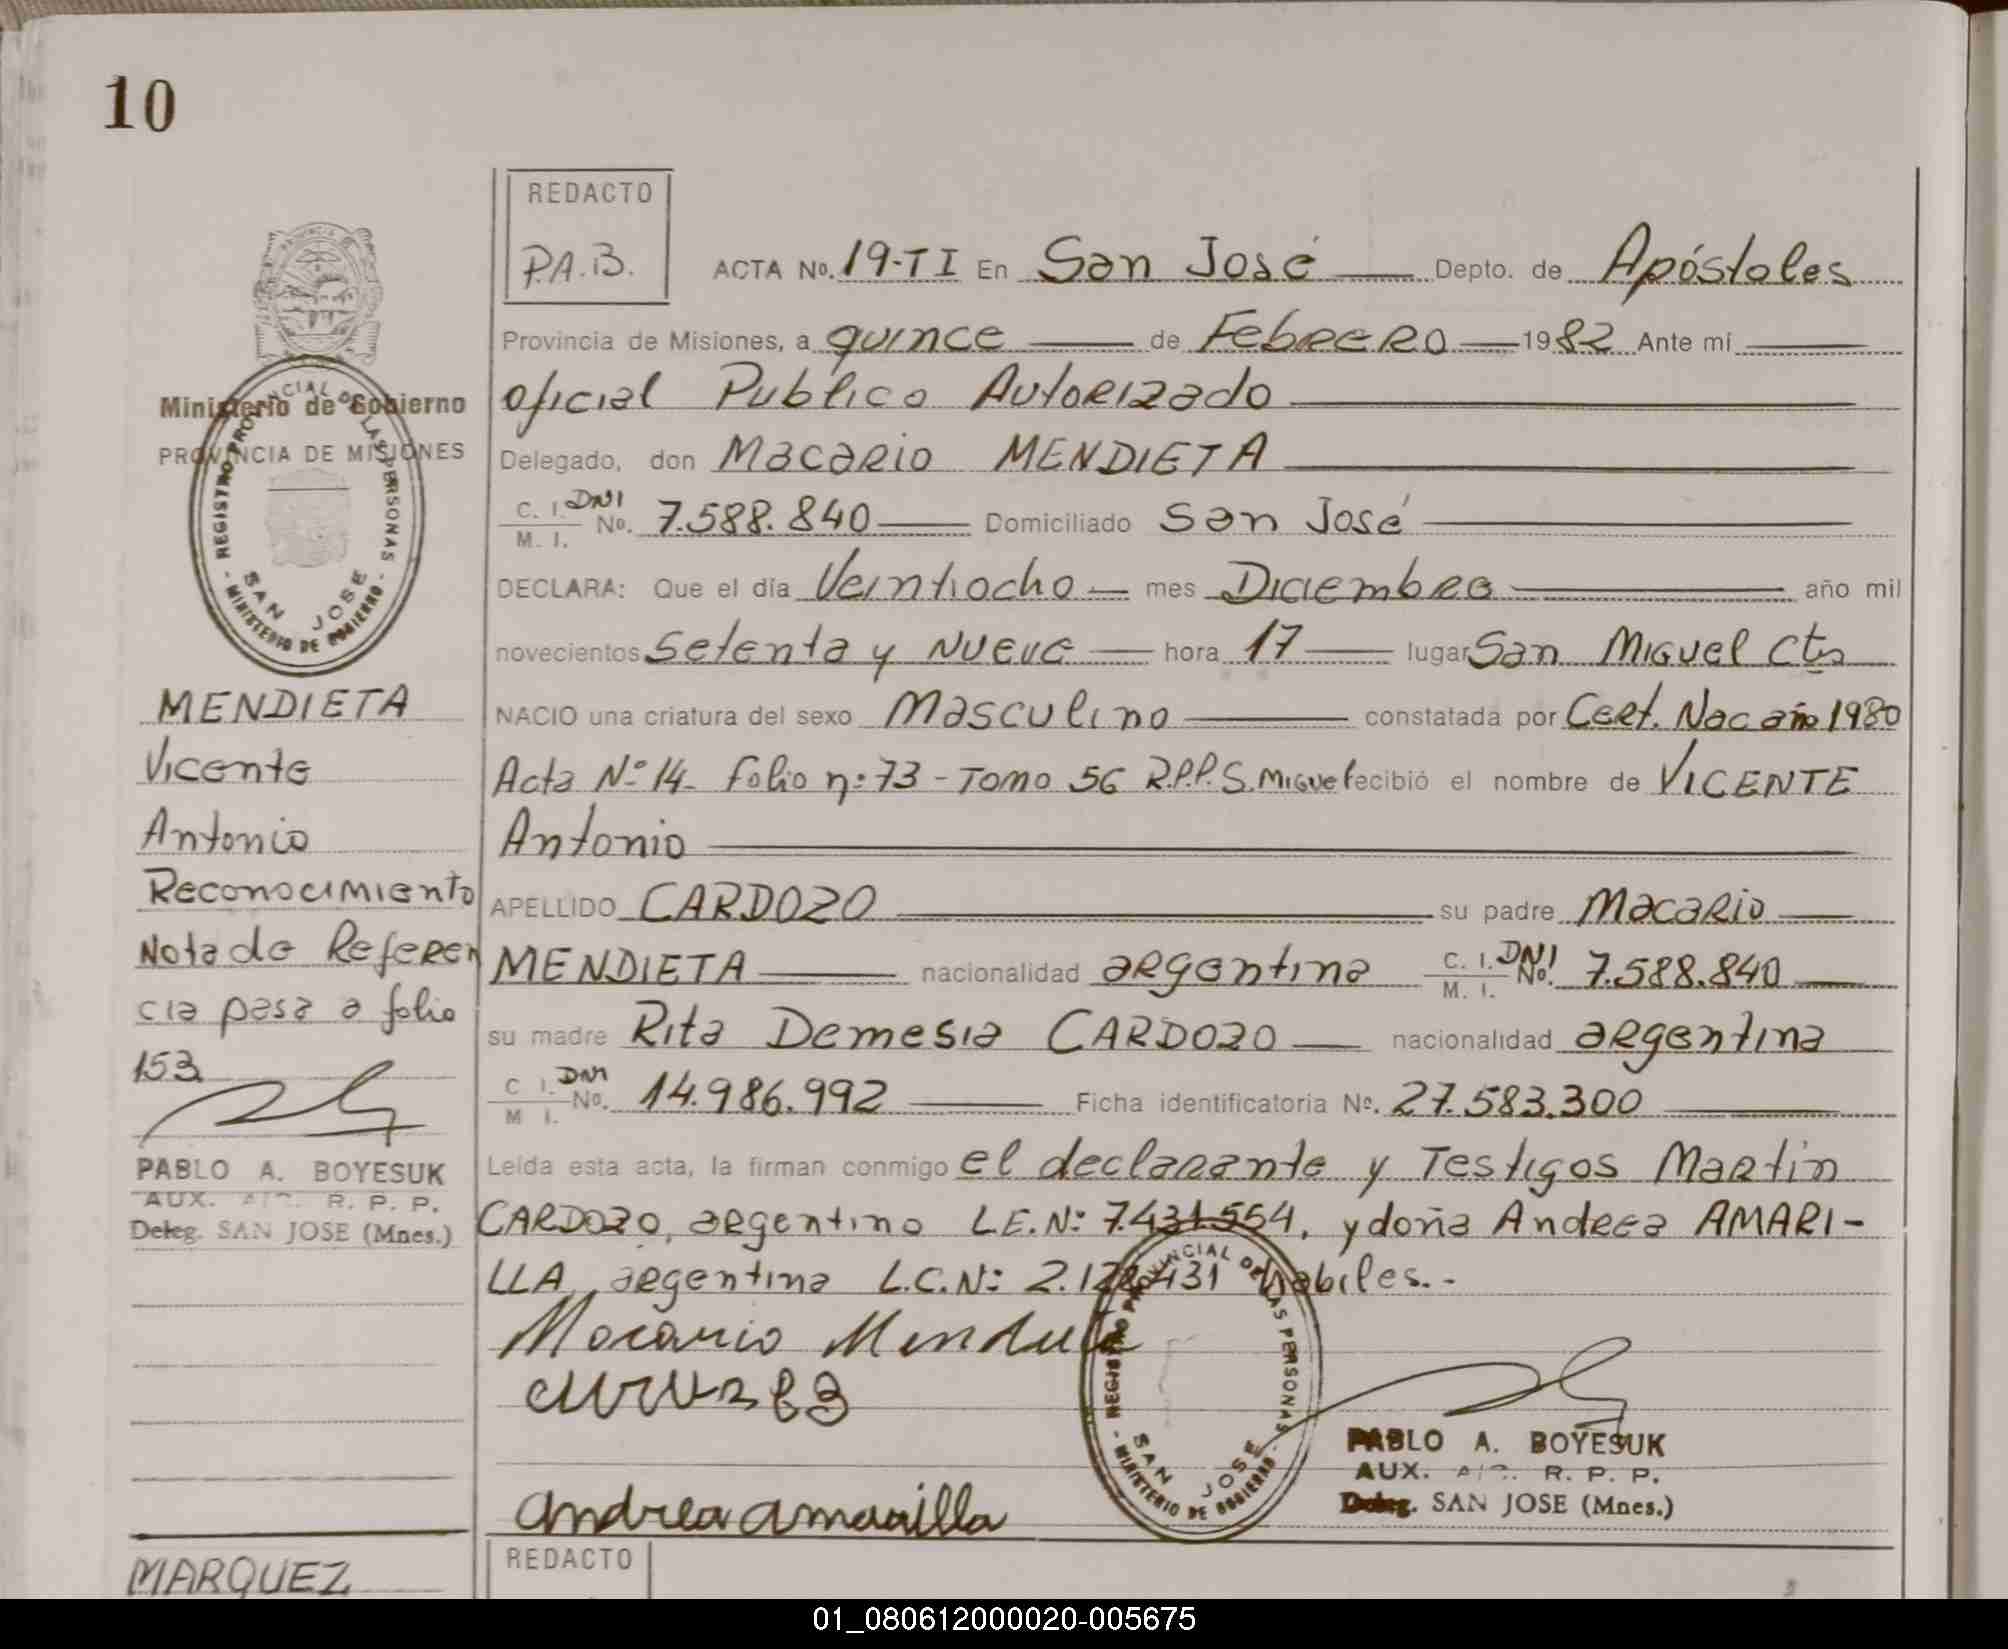 10
REDACTO
P.A.B.
ACTA No. 19-TI En San José Depto. de Apóstoles
Provincia de Misiones, a quince de Febrero 1982 Ante mi
oficial Publico Autorizado
Delegado, don Macario MENDIETA
C. I. DNI No. 7.588.840 Domiciliado San José
M. I.
DECLARA: Que el día Veintiocho mes Diciembre año mil
novecientos Setenta y Nueve hora 17 lugar San Miguel Ctes
NACIO una criatura del sexo Masculino constatada por Cert. Nac año 1980
Acta Nº 14 - Folio nº 73 - Tomo 56 R.P.P. S. Miguel recibió el nombre de VICENTE
Antonio
APELLIDO CARDOZO su padre Macario
MENDIETA nacionalidad argentina C. I. DNI No. 7.588.840
M. I.
su madre Rita Demesia CARDOZO nacionalidad argentina
C. I. DNI No. 14.986.992 Ficha identificatoria No. 27.583.300
M. I.
Leída esta acta, la firman conmigo el declarante y Testigos Martin
CARDOZO, argentino L.E.Nº 7.431.554, y doña Andrea AMARI-
LLA, argentina L.C.Nº 2.431 habiles.-
Macario Mendieta
andrea amarilla
REGISTRO PROVINCIAL DE LAS PERSONAS
SAN JOSE
- MINISTERIO DE GOBIERNO -
PABLO A. BOYESUK
AUX. R. P. P.
Deleg. SAN JOSE (Mnes.)
Ministerio de Gobierno
PROVINCIA DE MISIONES
REGISTRO PROVINCIAL DE LAS PERSONAS
SAN JOSE
- MINISTERIO DE GOBIERNO -
MENDIETA
Vicente
Antonio
Reconocimiento
Nota de Referen
cia pasa a folio
153
PABLO A. BOYESUK
AUX. R. P. P.
Deleg. SAN JOSE (Mnes.)
MARQUEZ
REDACTO
01_080612000020-005675